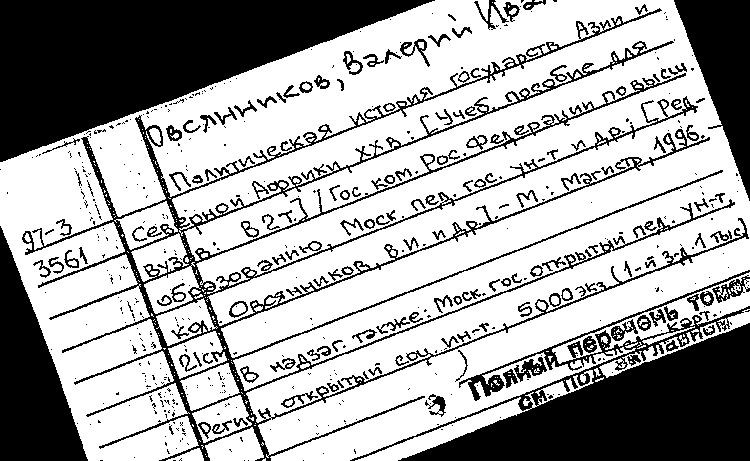 Овсянников, Валерий Иван
Политическая история государств Азии и
Северной Африки, XX в.: [Учеб. пособие для
97-3
вузов: В 2 т.] / Гос. ком. Рос. Федерации по высш.
3561
образованию, Моск. пед. гос. ун-т и др.; [Ред-
кол. Овсянников, В.И. и др.]. - М.: Магистр, 1996. -
21 см.
В надзаг. также: Моск. гос. открытый пед. ун-т,
Регион. открытый соц. ин-т., 5000 экз (1-й з-д 1 тыс)
Полный перечень томов
см. след. карт.
см. под заглавием